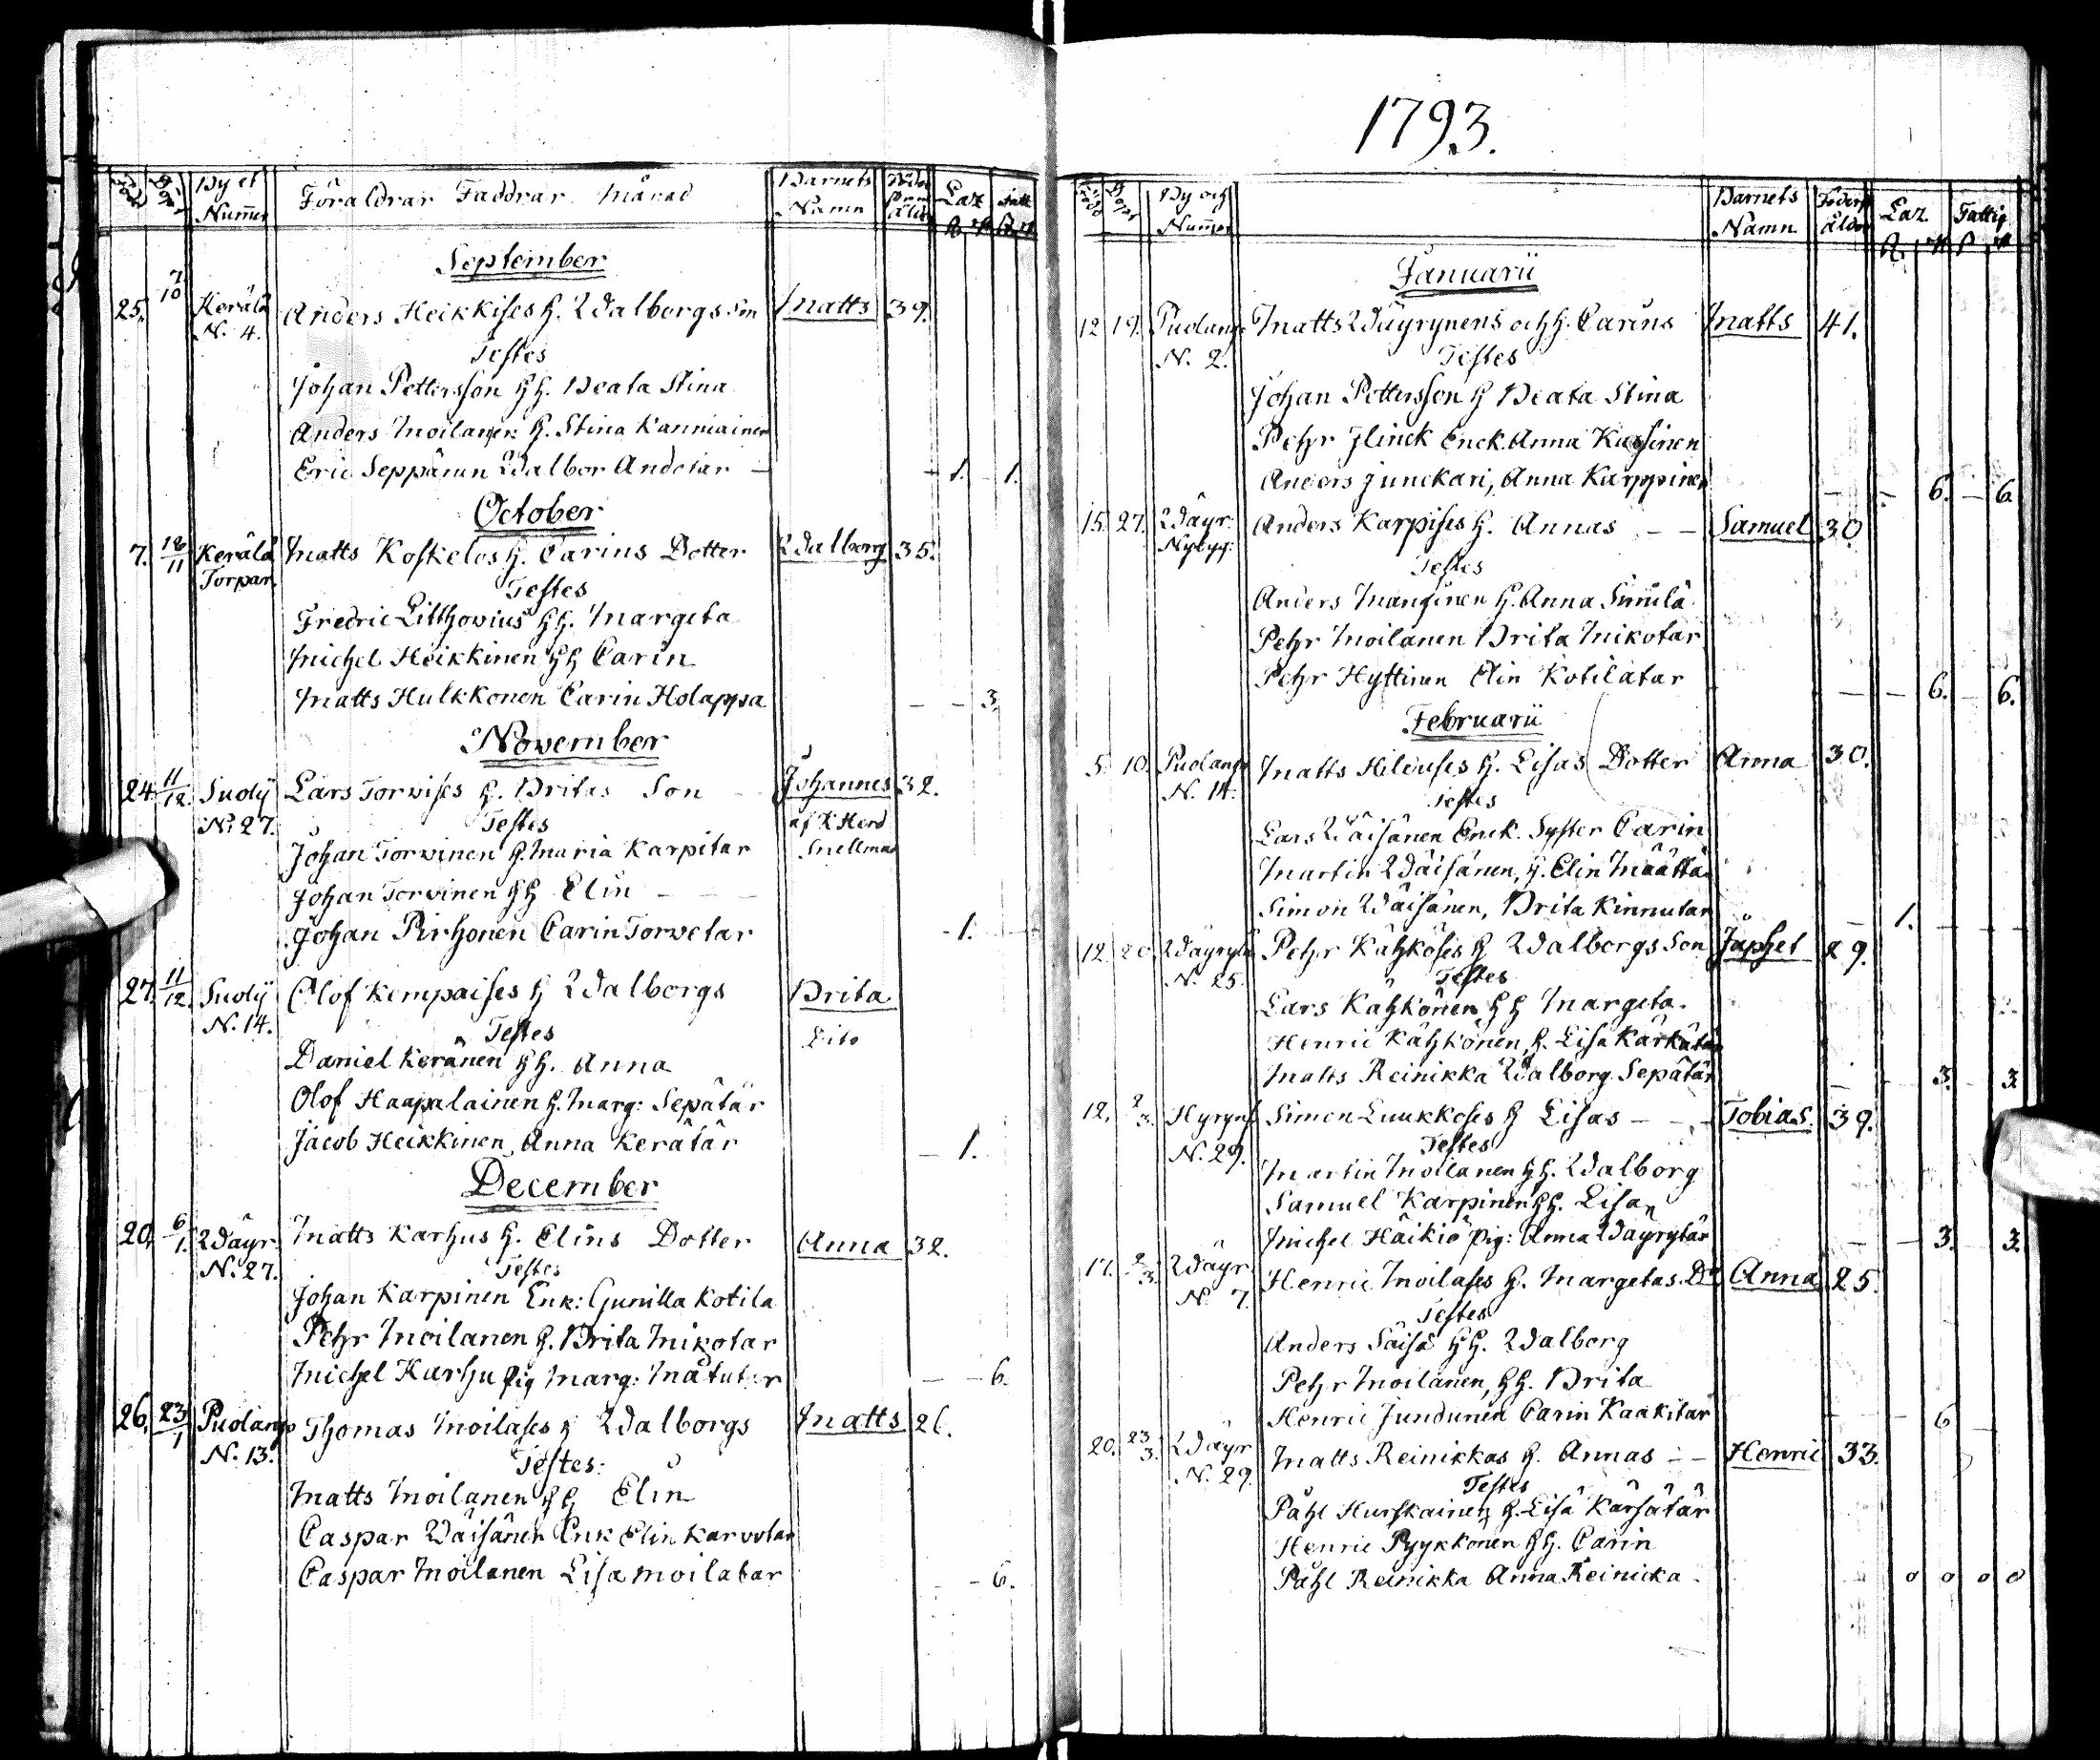 By et
Num̄er
Föräldrar Faddrar Månad
Barnets
Namn
Laz
September
25. 7/10 Kerälä Anders Heikkises H. Walborgs Son Matts 39.
N. 4.
Testes
Johan Pettersson HH. Beata Stina
Anders Moilanen H. Stina Kanniainen
Eric Seppänen Walbor Andetar — 1. 1.
October
7. 18/11 Kerälä Matts Koskelos H. Carins Dotter Walborg 35.
Torpar
Testes
Fredric Litthovius HH. Margeta
Michel Heikkinen HH Carin
Matts Hulkkonen Carin Holappa — — 3.
November
24. 11/12 Suolij Lars Torvises H. Britas Son Johannes 32.
N. 27. Testes af K Herd
Johan Torvinen H. Maria Karpitar Snellman
Johan Torvinen HH Elin — — —
Johan Pirhonen Carin Torvetar - 1.
27. 11/12. Suolij Olof Kempaises H Walborgs Brita
N. 14. Testes Dito
Daniel Keränen HH. Anna
Olof Haapalainen H. Marg: Sepätär
Jacob Heikkinen, Anna Kerätär — 1.
December
20. 6/1. Wäyr. Matts Karhus H. Elins Dotter Anna 32.
N. 27. Testes
Johan Karpinen Enk: Gunilla Kotila
Pehr Moilanen H. Brita Mikotar
Michel Karhu pig Marg: Mätutar — — 6.
26. 23/1 Puolang Thomas Moilases H Walborgs Matts 26.
N. 13.
Testes:
Matts Moilanen HH Elin
Caspar Wäisänen Enk Elin Karvotar
Caspar Moilanen Lisa Moilatar — 6.
1793.
By och
Num̄er
Barnets
Namn
Föders
Ålder
Laz. Fattig
Januarii
12 19. Puolang Matts Wäyrynens och H. Carins Matts 41.
N. 2.
Testes
Johan Pettersson H Beata Stina
Pehr Flinck Enck. Anna
Anders Junckari, Anna Karppinen — — 6. — 6.
15. 27. Wäyr. Anders Karpises H. Annas — — Samuel 30.
Nybyg:
Testes
Anders Manninen H. Anna
Pehr Moilanen Brita Mikotar
Pehr Hyttinen Elin Kotilatar — — 6. — 6.
Februarii
5. 10. Puolang Matts H. Lisas Dotter Anna 30.
N. 14.
Testes
Lars Wäisänen Enck. Syster Carin
Martin Wäisänen, H. Elin Määttä
Simon Wäisänen, Brita Kinnutar — 1. — —
12. 20. Wäyrylä Pehr Kähköses H Walborgs Son Japhet 29.
N. 25. Testes
Lars Kähkönen HH Margeta.
Henric Kähkönen, H. Lisa
Matts Reinikka Walborg Sepätär — 3. 3
12. 2/3. Simon Luukkoses H Lisas — — Tobias. 39.
N. 29. Testes
Martin Moilanen HH. Walborg
Samuel Karpinen HH. Lisa
Michel Häikiö pig: Anna Wäyrytär — — 3. 3.
17. 2/3. Wäyr Henric Moilases H. Margetas. Dr Anna 25.
N 7.
Testes
Anders Säisä HH. Walborg
Pehr Moilanen, HH. Brita
Henric Jundunen Carin Kaakitar — — 6 —
20. 23/3. Wäyr Matts Reinikkas H. Annas — — Henric 33.
N. 29.
Testes
Påhl Hurskainen, H. Lisa
Henric Pyykkönen HH. Carin
Påhl Reinikka Anna Reinicka. 0 0 0 0